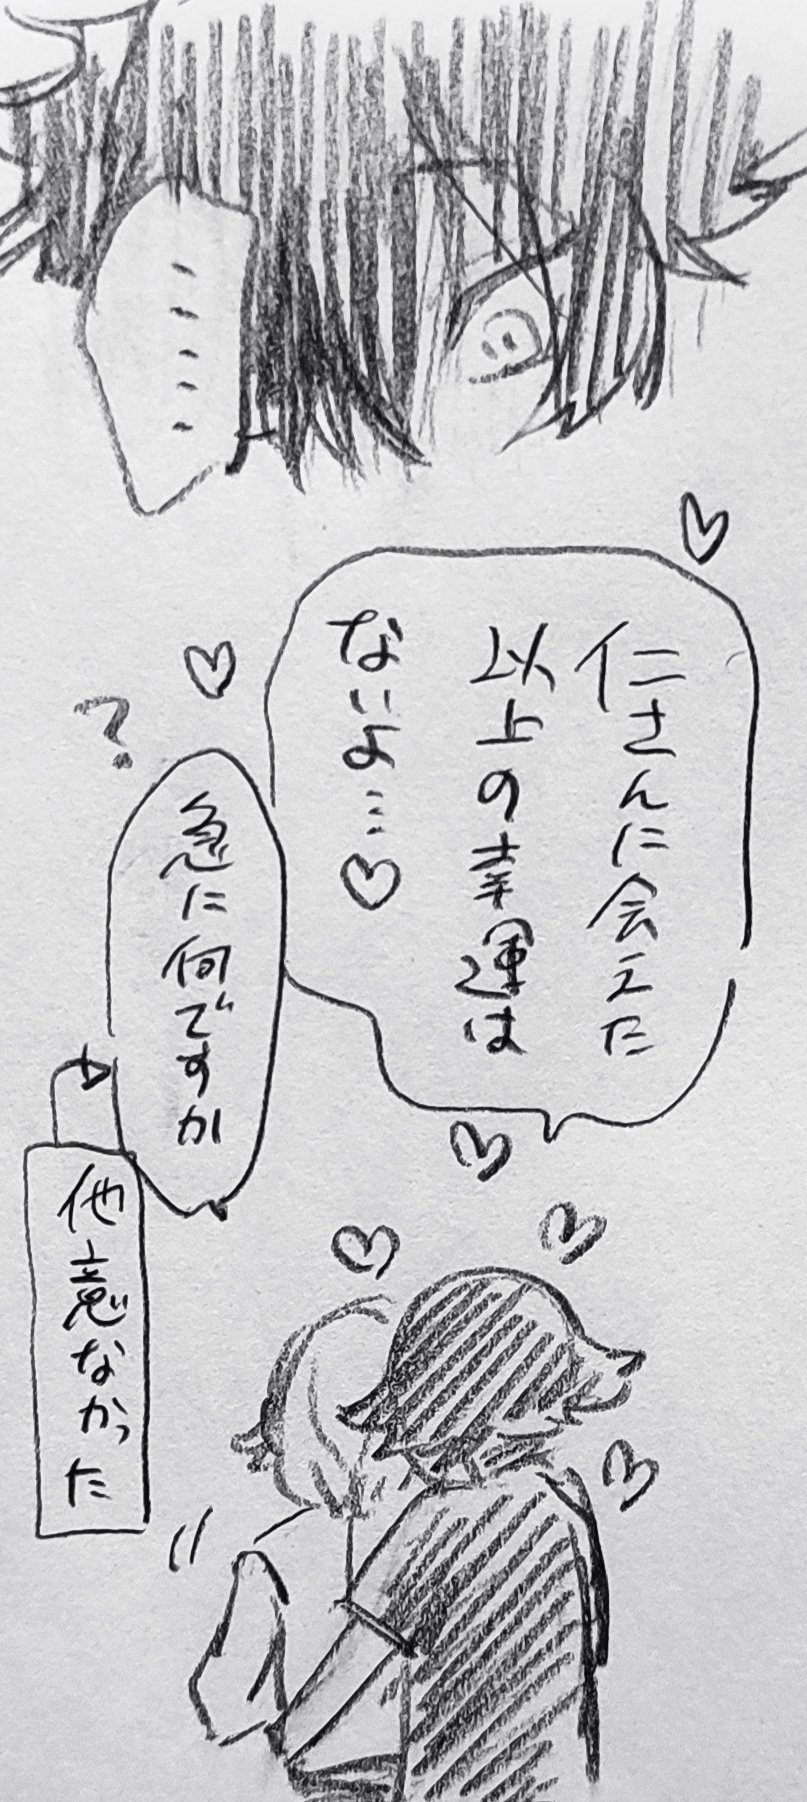 ……
仁さんに会えた
以上の幸運は
ないよ…♡
急に何ですか
?
他意なかった